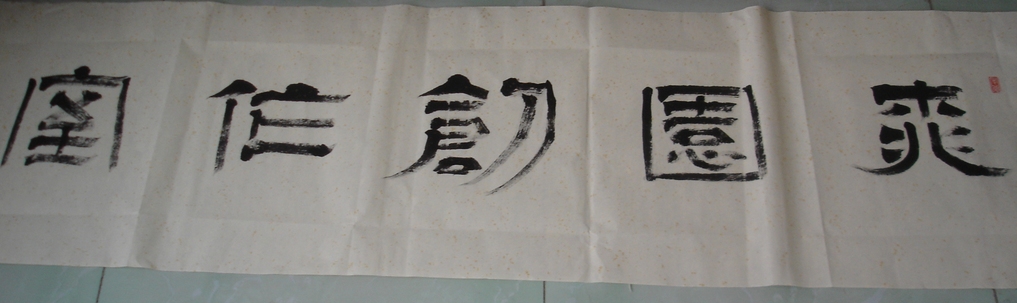 園創作室